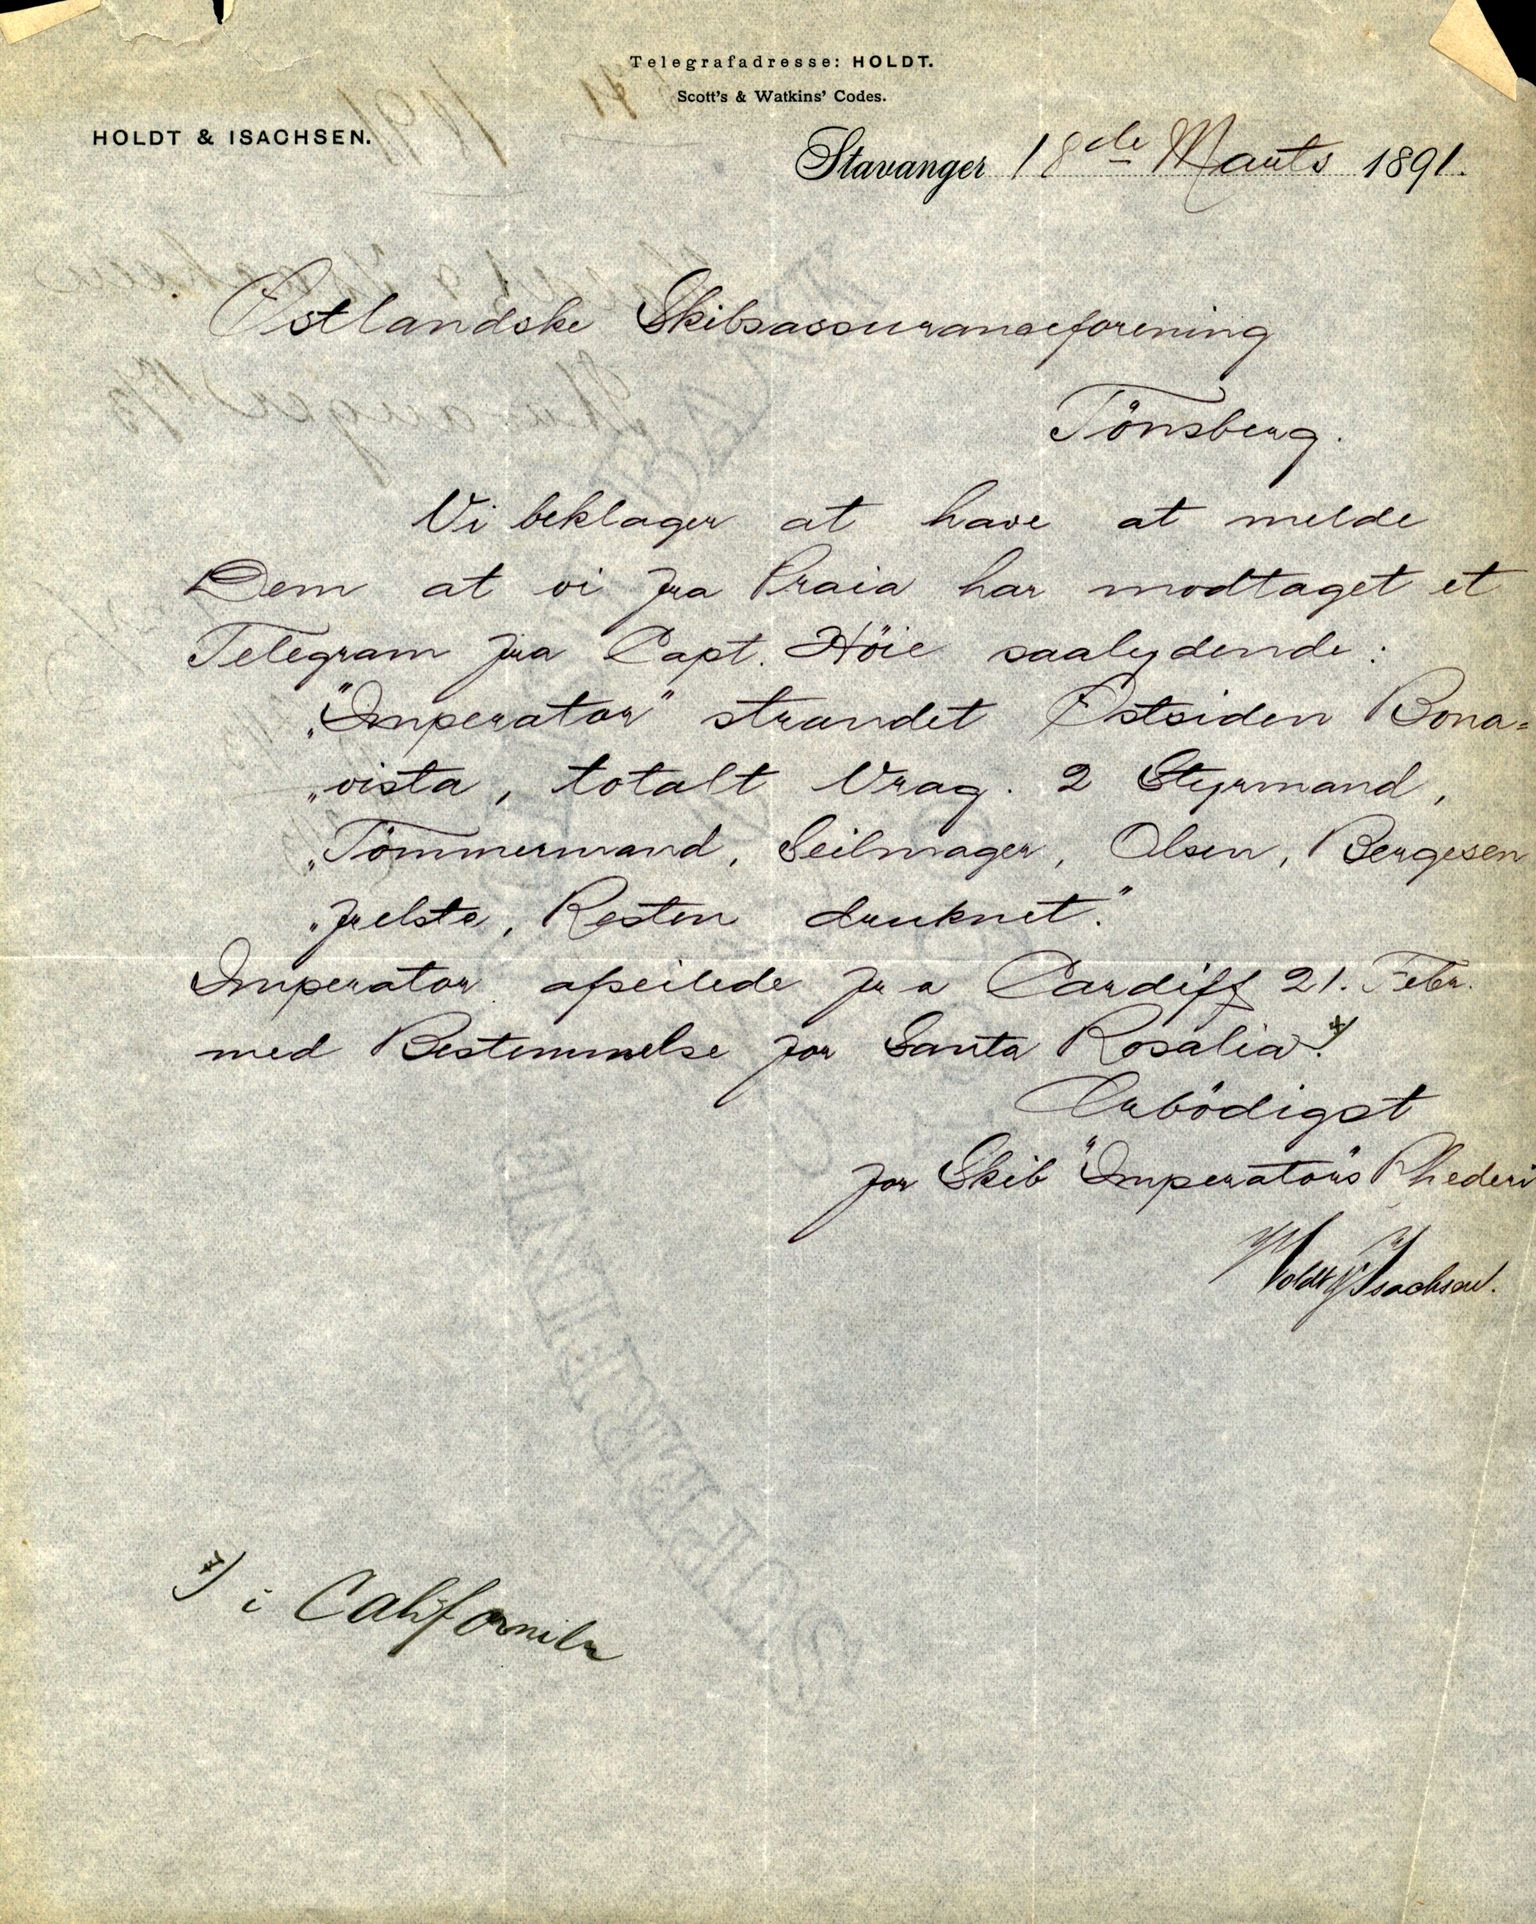 Telegrafadresse: HOLDT.
Scott's & Watkins' Codes.
HOLDT & ISACHSEN.
Stavanger 18de Marts 1891.
Østlandske Skibsassuranceforening
Tönsberg.
Vi beklager at have at melde
Dem at vi fra Praia har modtaget et
Telegram fra Capt. Höie saalydende:
„"Imperator" strandet Østsiden Bona=
„vista, totalt Vrag. 2 Styrmand,
„Tömmermand, Seilmager, Olsen, Bergesen
„frelste, Resten druknet."
Imperator afseilede fra Cardiff 21. Febr.
med Bestemmelse for Santa Rosalia. x)
Ærbödigst
for Skib "Imperator"s Rhederi
Holdt & Isachsen.
x) i Californien